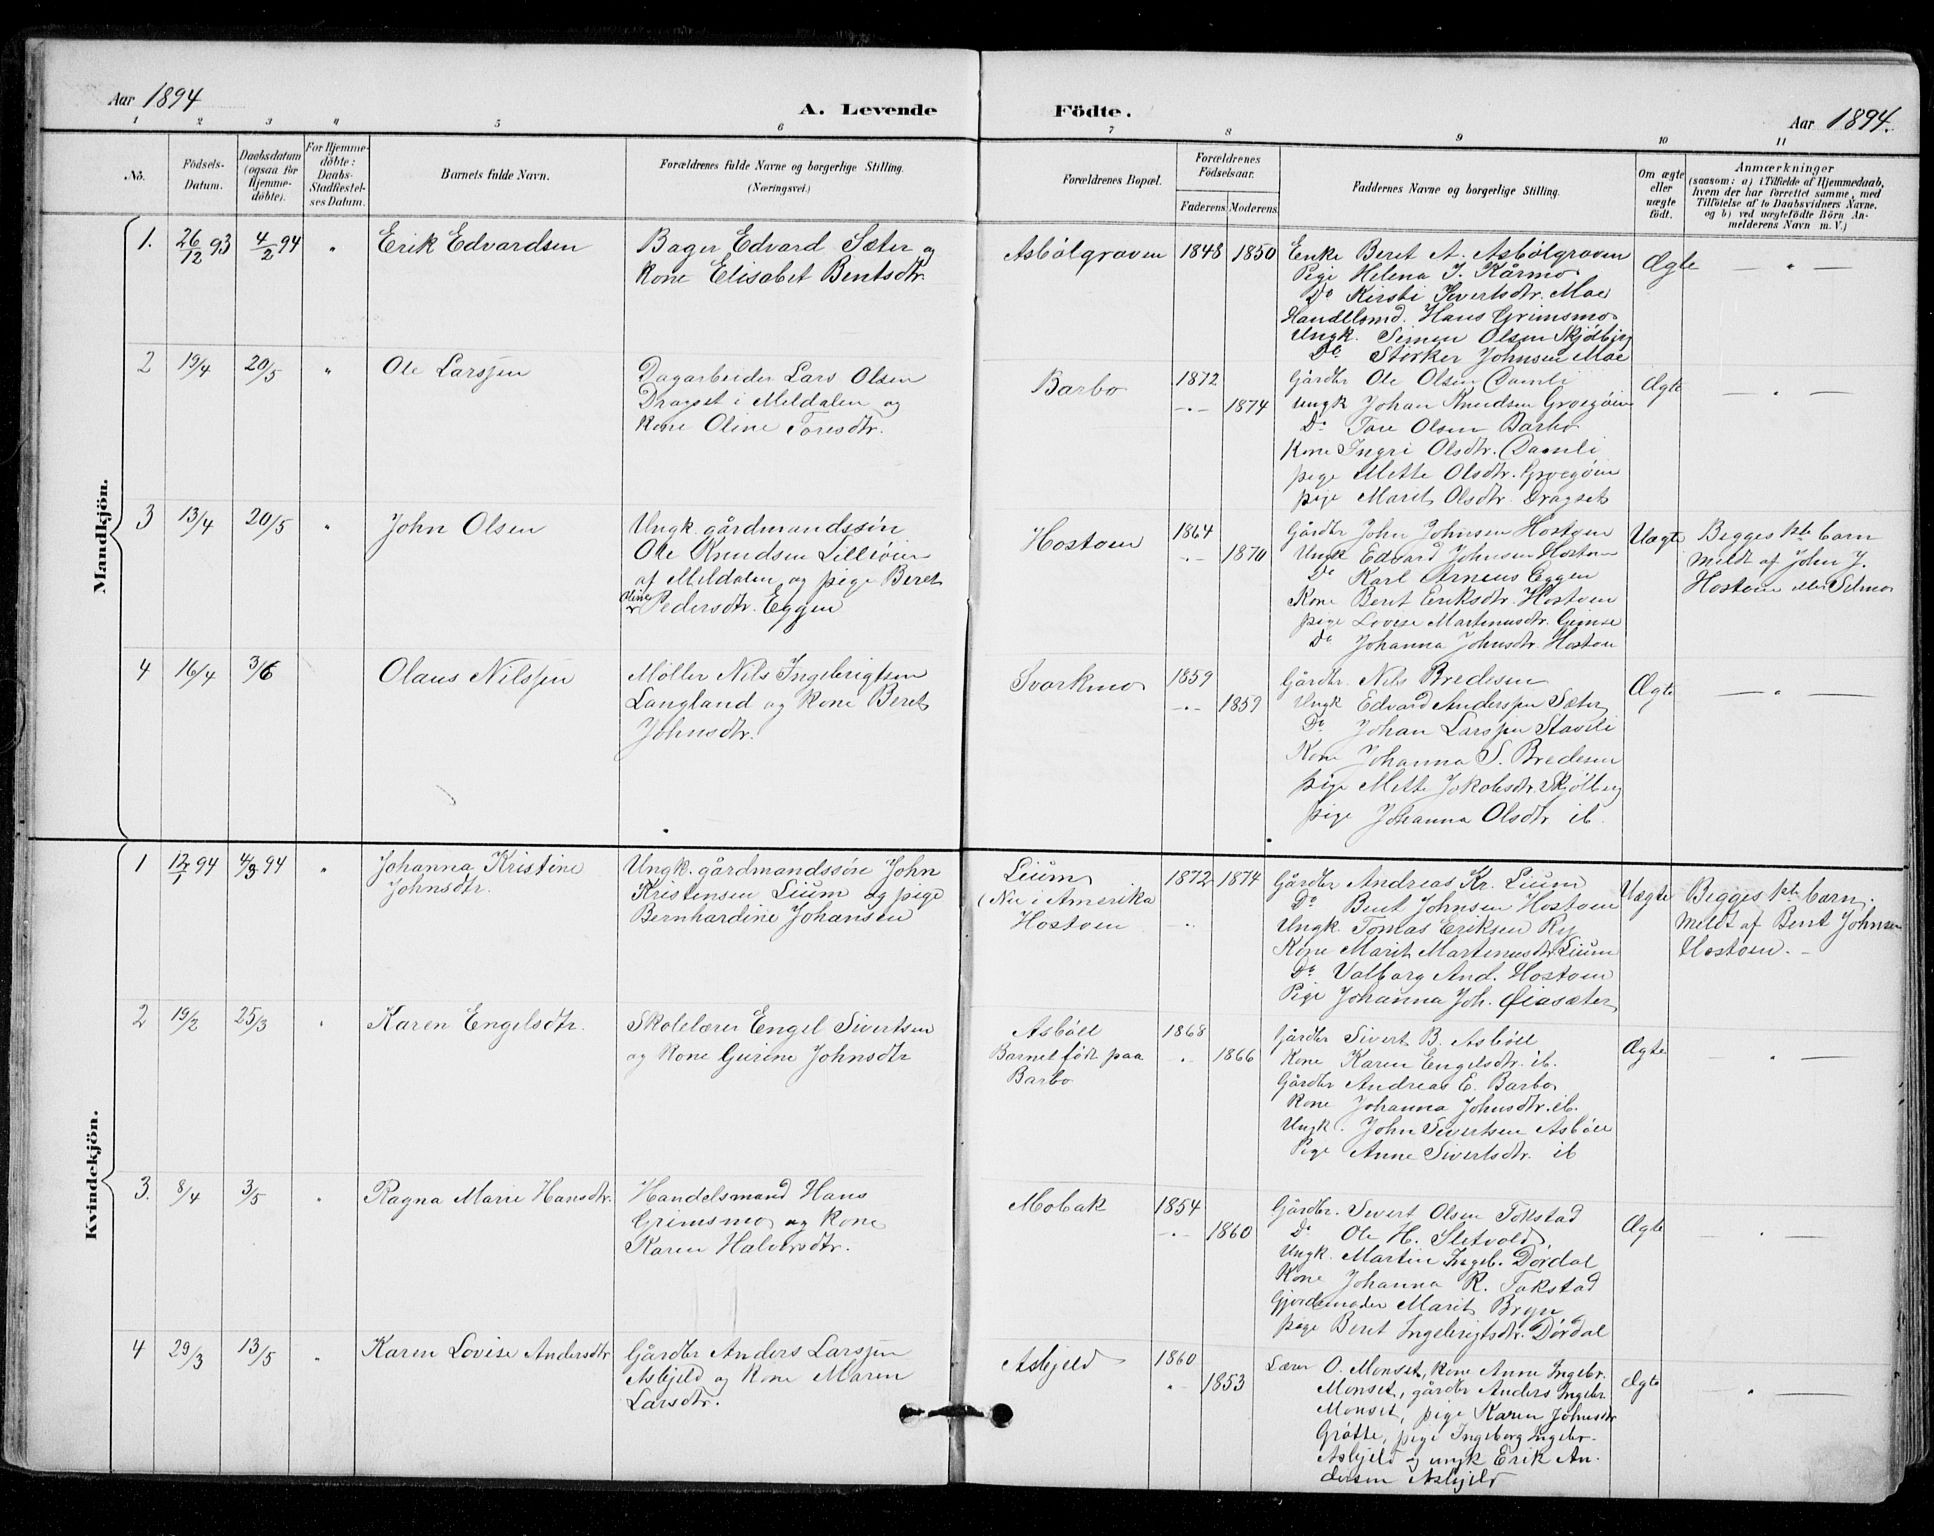 Aar 1894
A. Levende Födte.
Aar 1894.
1 2 3 4 5 6 7 8 9 10 11
No.
Födsels-Datum.
Daabsdatum (ogsaa for Hjemmedöbte).
For Hjemmedöbte: Daabs-Stadfæstelses Datum.
Barnets fulde Navn.
Forældrenes fulde Navne og borgerlige Stilling.
(Næringsvei.)
Forældrenes Bopæl.
Forældrenes Födselsaar.
Faderens Moderens
Faddernes Navne og borgerlige Stilling.
Om ægte eller uægte födt.
Anmærkninger
(saasom: a) i Tilfælde af Hjemmedaab, hvem der har forrettet samme, med Tilföielse af to Daabsvidners Navne, og b) ved uægtefödte Börn Anmelderens Navn m. V.)
Mandkjön.
1. 26/12 93 4/2 94 " Erik Edvardsen
Bager Edvard Sæter og
kone Elisabet Bentsdtr.
Asbölgraven 1848 1850
Enke Beret A. Asbölgraven
Pige Helena J. Kårmo
Do Kirsti Sivertsdtr. Moe
Handelsmd. Hans Grimsmo
Ungk. Simon Olsen Skjølberg
Do Størker Johnsen Moe
Ægte — " —
2 19/4 20/5 " Ole Larssen
Dagarbeider Lars Olsen
Dragset i Meldalen og
kone Oline Toresdtr.
Barbo 1872
-"- 1874
Gårdbr Ole Olsen Damli
Ungk Johan Knudsen Grøegøien
Do Tore Olsen Barbo
Kone Ingri Olsdtr. Damli
pige Mette Olsdtr. Grøegøien
pige Marit Olsdtr. Dragset
Ægte — " —
3 13/4 20/5 " John Olsen
Ungk. gårdmandssøn
Ole Knudsen Lilleøien
af Meldalen og pige Beret
Oline Pedersdtr. Eggen
Hostoen 1864
-"- 1870
Gårdbr John Johnsen Hostoen
Ungk Edvard Johnsen Hostoen
Do Karl Arneus Eggen
Kone Beret Eriksdtr. Hostoen
pige Lovise Martinusdtr. Gimse
Do Johanna Johnsdtr. Hostoen
Uægte
Begges 1ste barn
meldt af John J.
Hostoen eller Solmo
4 16/4 3/6 Olaus Nilssen
Møller Nils Ingebrigtsen
Langland og kone Beret
Johnsdtr.
Svorkmo 1859
-"- 1859
Gårdbr. Nils Bredesen
Ungk Edvard Anderssen Sæter
Do Johan Larssen Stavili
Kone Johanna S. Bredesen
pige Mette Jakobsdtr. Skjølberg
pige Johanna Olsdtr ib.
Ægte — " —
Kvindekjön.
1 12/1 94 4/3 94 " Johanna Kristine
Johnsdtr.
Ungk. gårdmandssön John
Kristensen Lium og pige
Bernhardine Johansen
Lium
(Nu i Amerika
Hostoen
1872 1874
-"-
Gårdbr Andreas Kr. Lium
Do Bent Johnsen Hostoen
Ungk. Tomas Eriksen Ry
Kone Marit Martinusdtr. Lium
Do Valborg And. Hostoen
Pige Johanna Joh. Øiasæter
Uægte
Begges 1ste barn.
meldt af Bent Johnsen
Hostoen. -
2 19/2 25/3 " Karen Engelsdtr.
Skolelærer Engel Sivertsen
og kone Gurine Johnsdtr
Asböll
Barnet født paa
Barbo
1868
" 1866
Gårdbr Sivert B. Asböll
Kone Karen Engelsdtr. ib.
Gårdbr Andreas E. Barbo
Kone Johanna Johnsdtr. ib.
Ungk. John Sivertsen Asböll
Pige Anne Sivertsdtr. ib
Ægte " —
3. 8/4 3/5 " Ragna Marie Hansdtr.
Handelsmand Hans
Grimsmo og kone
Karen Halvorsdtr.
Mobak 1854
-"- 1860
Gårdbr. Sivert Olsen Tokstad
Do Ole H. Sletvold
Ungk. Martin Ingeb. Dördal
Kone Johanna R. Tokstad
Gjordemoder Marit Bryn
pige Beret Ingebrigtsdtr. Dördal
Ægte - " —
4 29/3 13/5 " Karen Lovise Andersdtr
Gårdbr Anders Larssen
Asbjeld og kone Maren
Larsdtr.
Asbjeld 1860
" 1853
Lærer O. Monset, kone Anne Ingebr.
Monset, gårdbr Anders Ingebr
Monset, pige Karen Johnsdtr
Grøtte, pige Ingeborg Ingebr.
Asbjeld og ungk Erik An-
dersen Asbjeld
Ægte — " —